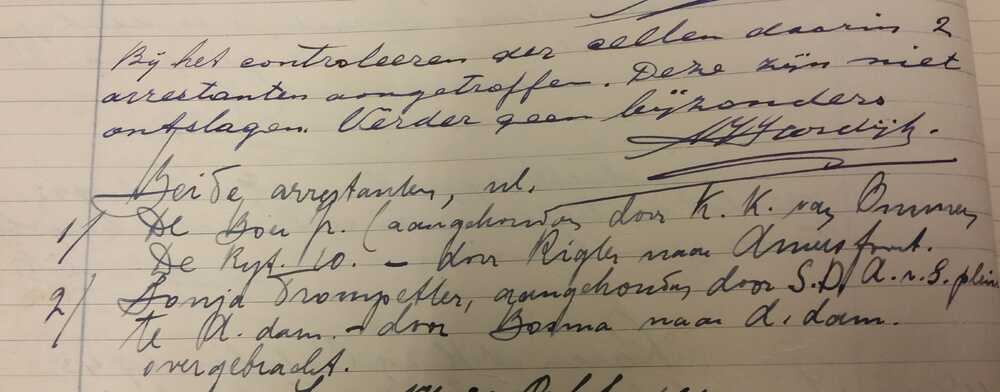 Bij het controleeren der cellen daarin 2
arrestanten aangetroffen. Deze zijn niet
ontslagen. Verder geen bijzonders
Beide arrestanten, nl.
1/ De Boer p. (aangehouden door K. K. van Ommen,
De Rijt. 10. - door Rigter naar Amersfoort.
2/ Sonja Trompetter, aangehouden door S.D. A. v. S. plein
te A. dam. - door Bosma naar A. dam.
overgebracht.